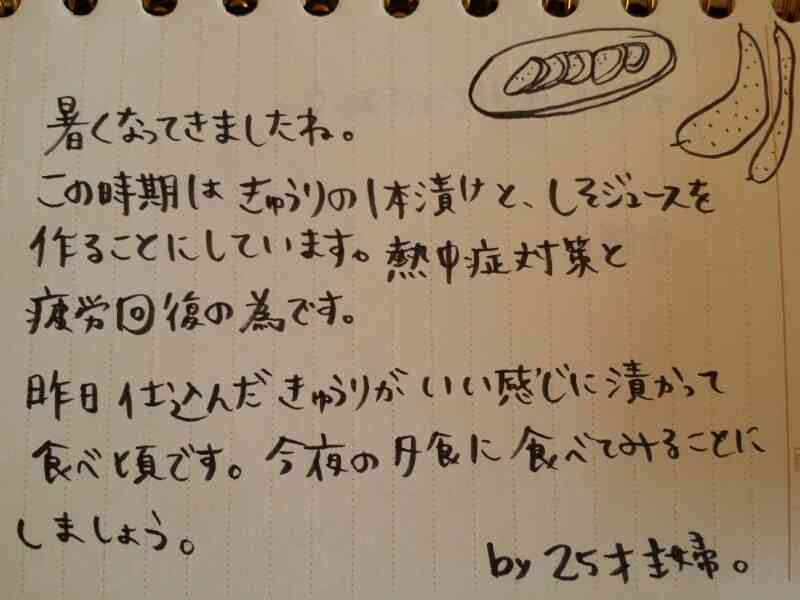 暑くなってきましたね。
この時期はきゅうりの1本漬けと、しそジュースを
作ることにしています。熱中症対策と
疲労回復の為です。
昨日仕込んだきゅうりがいい感じに漬かって
食べと頃です。今夜の夕食に食べてみることに
しましょう。
by 25才主婦。